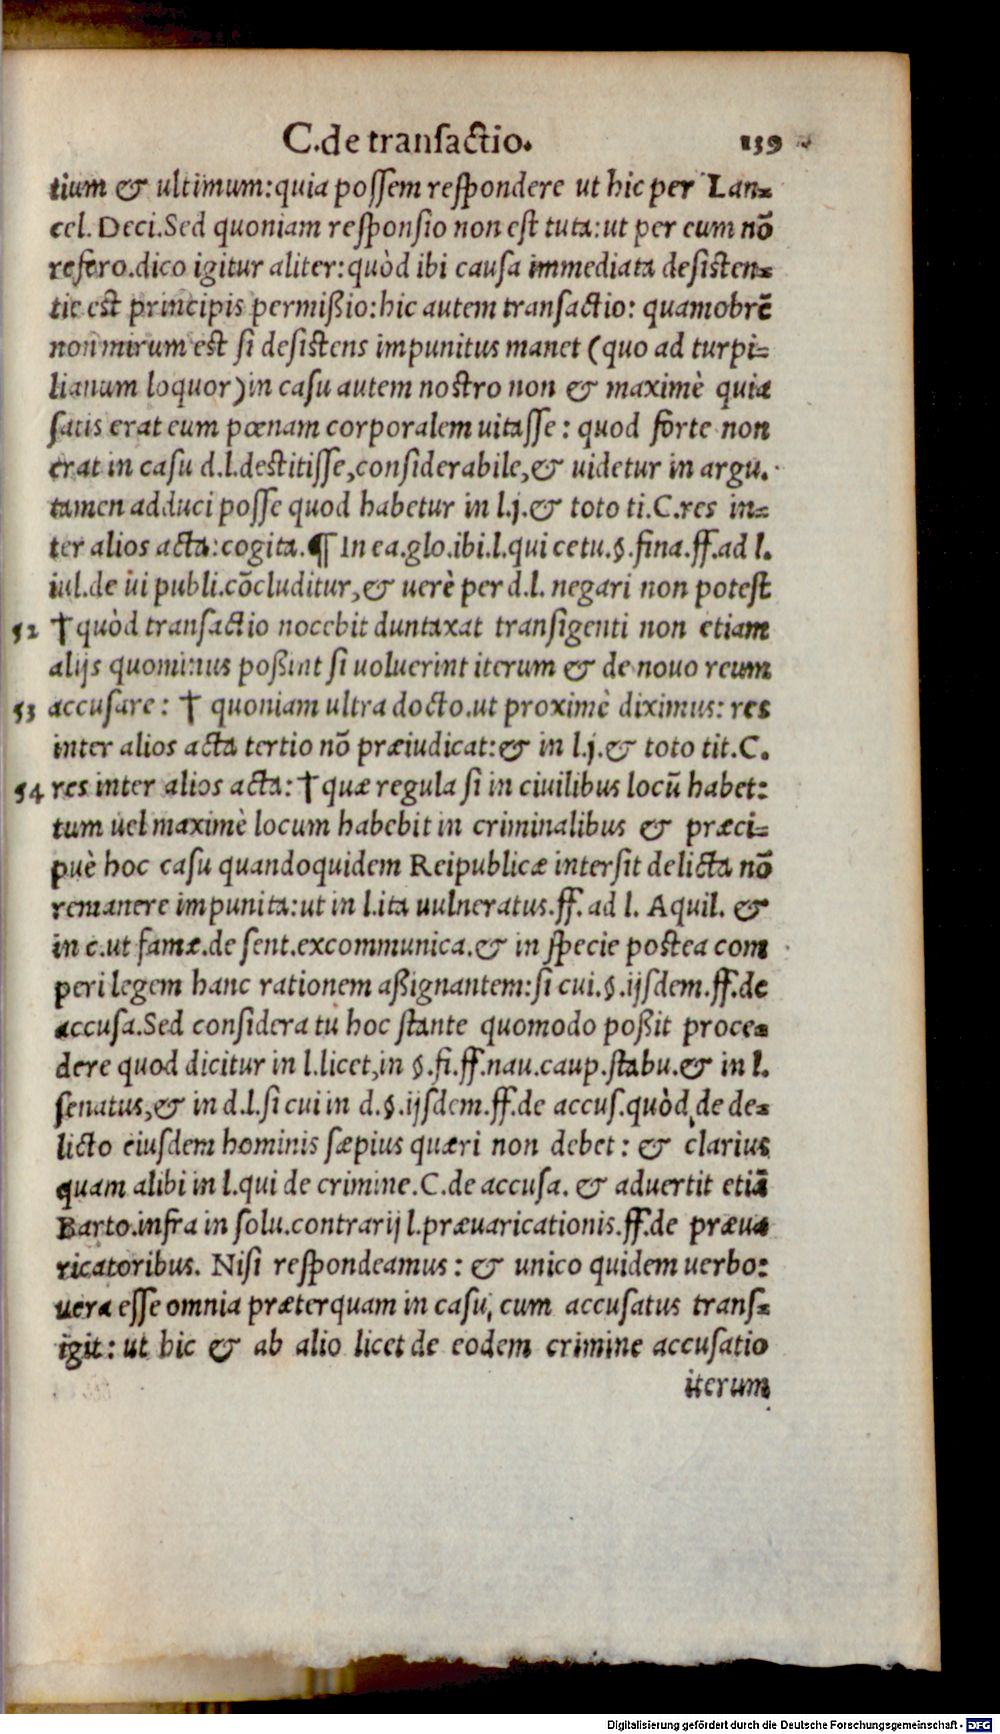 C.de transactio. 139
tium & ultimum:quia possem respondere ut hic per Lan=
cel. Deci.Sed quoniam responsio non est tuta:ut per eum nō
refero.dico igitur aliter:quòd ibi causa immediata desisten=
tie est principis permißio:hic autem transactio: quamobrē
non mirum est si desistens impunitus manet (quo ad turpi=
lianum loquor)in casu autem nostro non & maximè quia
satis erat eum pœnam corporalem uitasse: quod forte non
erat in casu d.l.destitisse,considerabile,& uidetur in argu.
tamen adduci posse quod habetur in l.j.& toto ti.C.res in=
ter alios acta:cogita.¶ In ea.glo.ibi.l.qui cetu.§.fina.ff.ad l.
iul.de ui publi.cōcluditur,& uerè per d.l. negari non potest
52 †quòd transactio nocebit duntaxat transigenti non etiam
alijs quominus poßint si uoluerint iterum & de nouo reum
53 accusare: † quoniam ultra docto.ut proximè diximus: res
inter alios acta tertio nō præiudicat:& in l.j.& toto tit.C.
54 res inter alios acta:†quæ regula si in ciuilibus locū habet:
tum uel maximè locum habebit in criminalibus & præci=
puè hoc casu quandoquidem Reipublicæ intersit delicta nō
remanere impunita:ut in l.ita uulneratus.ff. ad l. Aquil. &
in c.ut famæ.de sent.excommunica.& in specie postea com
peri legem hanc rationem aßignantem:si cui.§.ijsdem.ff.de
accusa.Sed considera tu hoc stante quomodo poßit proce=
dere quod dicitur in l.licet,in §.fi.ff.nau.caup.stabu.& in l.
senatus,& in d.l.si cui in d.§.ijsdem.ff.de accus.quòd de de=
licto eiusdem hominis sæpius quæri non debet: & clarius
quam alibi in l.qui de crimine.C.de accusa. & aduertit etiā
Barto.infra in solu.contrarij l.præuaricationis.ff.de præua
ricatoribus. Nisi respondeamus: & unico quidem uerbo:
uera esse omnia præterquam in casu, cum accusatus trans=
igit: ut hic & ab alio licet de eodem crimine accusatio
iterum
Digitalisierung gefördert durch die Deutsche Forschungsgemeinschaft - DFG